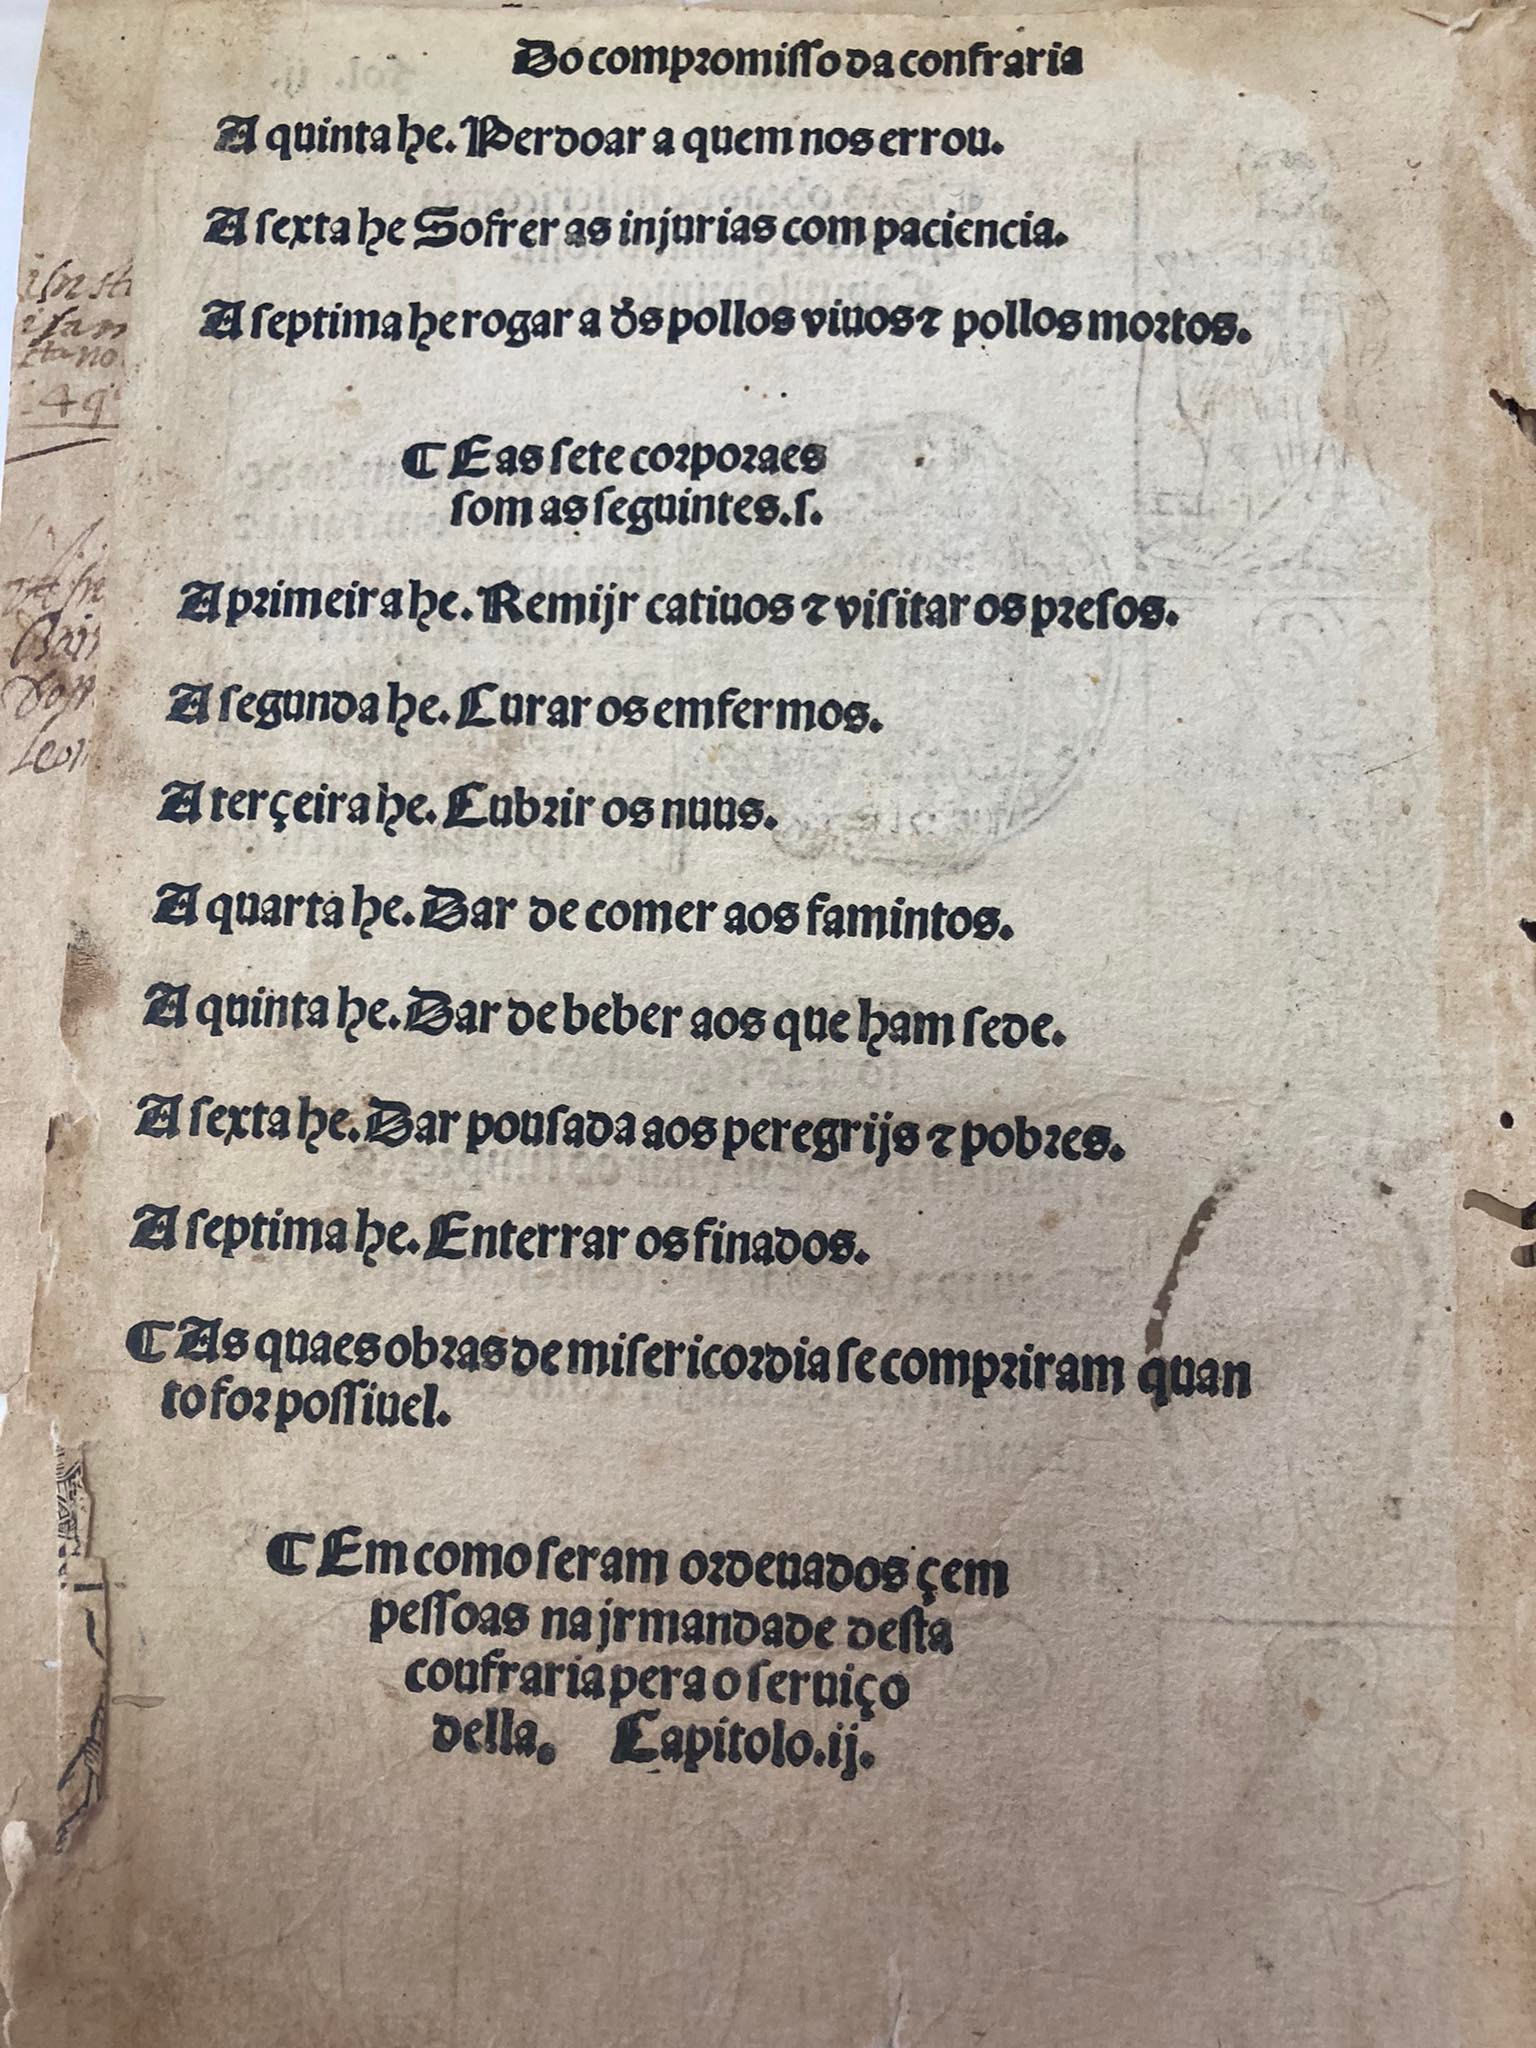 Do compromisso da confraria
A quinta he. Perdoar a quem nos errou.
A sexta he Sofrer as injurias com paciencia.
A septima he rogar a d̃s pollos viuos ⁊ pollos mortos.
¶ E as sete corporaes
som as seguintes.s.
A primeira he. Remijr catiuos ⁊ visitar os presos.
A segunda he. Curar os emfermos.
A terçeira he. Cubrir os nuus.
A quarta he. Dar de comer aos famintos.
A quinta he. Dar de beber aos que ham sede.
A sexta he. Dar pousada aos peregrijs ⁊ pobres.
A septima he. Enterrar os finados.
¶ As quaes obras de misericordia se compriram quan
to for possiuel.
¶ Em como seram ordenados çem
pessoas na jrmandade desta
confraria pera o seruiço
della. Capitolo.ij.